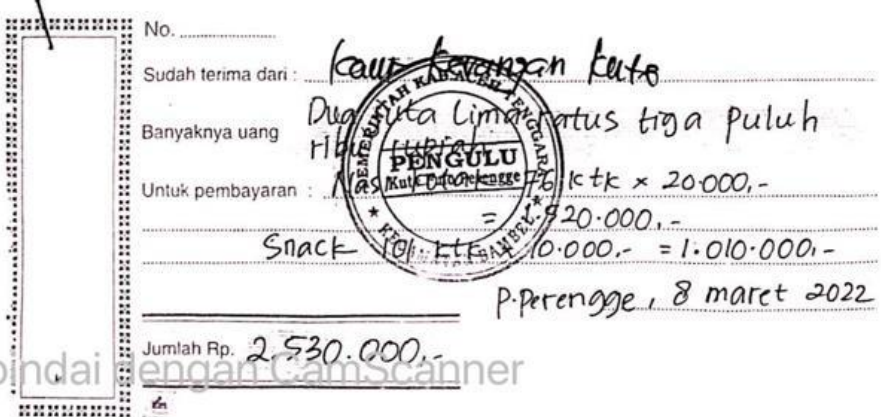 No.
Sudah terima dari : Kaur Keuangan Kute
Banyaknya uang Dua Juta Lima ratus tiga puluh
ribu rupiah
Untuk pembayaran : Nasi kotak 76 ktk x 20.000,-
= 1.520.000,-
Snack 101 ktk x 10.000,- = 1.010.000,-
P.Perengge, 8 maret 2022
Jumlah Rp. 2.530.000,-
PEMERINTAH KABUPATEN ACEH TENGGARA
PENGULU
bindai dengan CamScanner